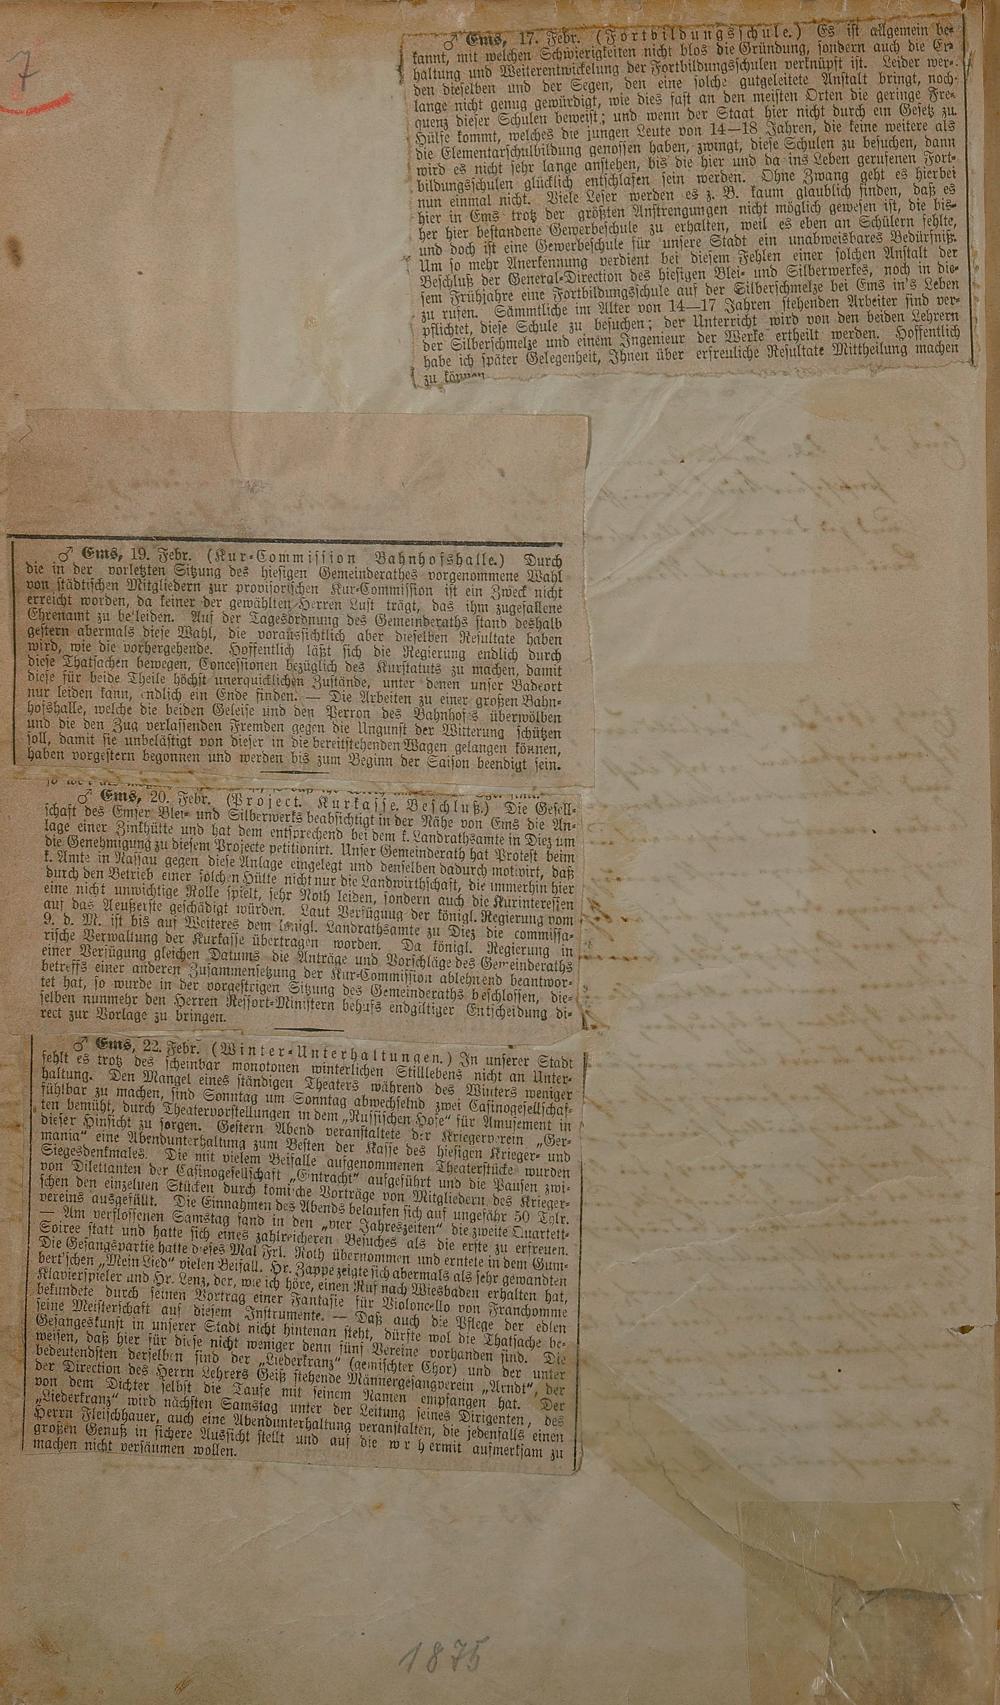 7
♂ Ems, 17. Febr. (Fortbildungsschule.) Es ist allgemein be-
kannt, mit welchen Schwierigkeiten nicht blos die Gründung, sondern auch die Er-
haltung und Weiterentwickelung der Fortbildungsschulen verknüpft ist. Leider wer-
den dieselben und der Segen, den eine solche gutgeleitete Anstalt bringt, noch
lange nicht genug gewürdigt, wie dies fast an den meisten Orten die geringe Fre-
quenz dieser Schulen beweist; und wenn der Staat hier nicht durch ein Gesetz zu
Hülfe kommt, welches die jungen Leute von 14—18 Jahren, die keine weitere als
die Elementarschulbildung genossen haben, zwingt, diese Schulen zu besuchen, dann
wird es nicht sehr lange anstehen, bis die hier und da ins Leben gerufenen Fort-
bildungsschulen glücklich entschlafen sein werden. Ohne Zwang geht es hierbei
nun einmal nicht. Viele Leser werden es z. B. kaum glaublich finden, daß es
hier in Ems trotz der größten Anstrengungen nicht möglich gewesen ist, die bis-
her hier bestandene Gewerbeschule zu erhalten, weil es eben an Schülern fehlte,
und doch ist eine Gewerbeschule für unsere Stadt ein unabweisbares Bedürfniß.
Um so mehr Anerkennung verdient bei diesem Fehlen einer solchen Anstalt der
Beschluß der General-Direction des hiesigen Blei- und Silberwerkes, noch in die-
sem Frühjahre eine Fortbildungsschule auf der Silberschmelze bei Ems in's Leben
zu rufen. Sämmtliche im Alter von 14—17 Jahren stehenden Arbeiter sind ver-
pflichtet, diese Schule zu besuchen; der Unterricht wird von den beiden Lehrern
der Silberschmelze und einem Ingenieur der Werke ertheilt werden. Hoffentlich
habe ich später Gelegenheit, Ihnen über erfreuliche Resultate Mittheilung machen
zu können
♂ Ems, 19. Febr. (Kur-Commission Bahnhofshalle.) Durch
die in der vorletzten Sitzung des hiesigen Gemeinderathes vorgenommene Wahl
von städtischen Mitgliedern zur provisorischen Kur-Commission ist ein Zweck nicht
erreicht worden, da keiner der gewählten Herren Lust trägt, das ihm zugefallene
Ehrenamt zu bekleiden. Auf der Tagesordnung des Gemeinderaths stand deshalb
gestern abermals diese Wahl, die voraussichtlich aber dieselben Resultate haben
wird, wie die vorhergehende. Hoffentlich läßt sich die Regierung endlich durch
diese Thatsachen bewegen, Concessionen bezüglich des Kurstatuts zu machen, damit
diese für beide Theile höchst unerquicklichen Zustände, unter denen unser Badeort
nur leiden kann, endlich ein Ende finden. — Die Arbeiten zu einer großen Bahn-
hofshalle, welche die beiden Geleise und den Perron des Bahnhofs überwölben
und die den Zug verlassenden Fremden gegen die Ungunst der Witterung schützen
soll, damit sie unbelästigt von dieser in die bereitstehenden Wagen gelangen können,
haben vorgestern begonnen und werden bis zum Beginn der Saison beendigt sein.
♂ Ems, 20. Febr. (Project. Kurkasse. Beschluß.) Die Gesell-
schaft des Emser Blei- und Silberwerks beabsichtigt in der Nähe von Ems die An-
lage einer Zinkhütte und hat dem entsprechend bei dem k. Landrathsamte in Diez um
die Genehmigung zu diesem Projecte petitionirt. Unser Gemeinderath hat Protest beim
k. Amte in Nassau gegen diese Anlage eingelegt und denselben dadurch motivirt, daß
durch den Betrieb einer solchen Hütte nicht nur die Landwirthschaft, die immerhin hier
eine nicht unwichtige Rolle spielt, sehr Noth leiden, sondern auch die Kurinteressen
auf das Aeußerste geschädigt würden. Laut Verfügung der königl. Regierung vom
9. d. M. ist bis auf Weiteres dem königl. Landrathsamte zu Diez die commissa-
rische Verwaltung der Kurkasse übertragen worden. Da königl. Regierung in
einer Verfügung gleichen Datums die Anträge und Vorschläge des Gemeinderaths
betreffs einer anderen Zusammensetzung der Kur-Commission ablehnend beantwor-
tet hat, so wurde in der vorgestrigen Sitzung des Gemeinderaths beschlossen, die-
selben nunmehr den Herren Ressort-Ministern behufs endgiltiger Entscheidung di-
rect zur Vorlage zu bringen.
♂ Ems, 22. Febr. (Winter-Unterhaltungen.) In unserer Stadt
fehlt es trotz des scheinbar monotonen winterlichen Stilllebens nicht an Unter-
haltung. Den Mangel eines ständigen Theaters während des Winters weniger
fühlbar zu machen, sind Sonntag um Sonntag abwechselnd zwei Casinogesellschaf-
ten bemüht, durch Theatervorstellungen in dem „Russischen Hofe" für Amusement in
dieser Hinsicht zu sorgen. Gestern Abend veranstaltete der Kriegerverein „Ger-
mania" eine Abendunterhaltung zum Besten der Kasse des hiesigen Krieger- und
Siegesdenkmales. Die mit vielem Beifalle aufgenommenen Theaterstücke wurden
von Dilettanten der Casinogesellschaft „Eintracht" aufgeführt und die Pausen zwi-
schen den einzelnen Stücken durch komische Vorträge von Mitgliedern des Krieger-
vereins ausgefüllt. Die Einnahmen des Abends belaufen sich auf ungefähr 50 Thlr.
— Am verflossenen Samstag fand in den „vier Jahreszeiten" die zweite Quartett-
Soiree statt und hatte sich eines zahlreicheren Besuches als die erste zu erfreuen.
Die Gesangspartie hatte dieses Mal Frl. Roth übernommen und erntete in dem Gum-
bert'schen „Mein Lied" vielen Beifall. Hr. Zappe zeigte sich abermals als sehr gewandten
Klavierspieler und Hr. Lenz, der, wie ich höre, einen Ruf nach Wiesbaden erhalten hat,
bekundete durch seinen Vortrag einer Fantasie für Violoncello von Franchomme
seine Meisterschaft auf diesem Instrumente. — Daß auch die Pflege der edlen
Gesangeskunst in unserer Stadt nicht hintenan steht, dürfte wol die Thatsache be-
weisen, daß hier für diese nicht weniger denn fünf Vereine vorhanden sind. Die
bedeutendsten derselben sind der „Liederkranz" (gemischter Chor) und der unter
der Direction des Herrn Lehrers Geiß stehende Männergesangverein „Arndt", der
von dem Dichter selbst die Taufe mit seinem Namen empfangen hat. Der
„Liederkranz" wird nächsten Samstag unter der Leitung seines Dirigenten, des
Herrn Fleischhauer, auch eine Abendunterhaltung veranstalten, die jedenfalls einen
großen Genuß in sichere Aussicht stellt und auf die wir hermit aufmerksam zu
machen nicht versäumen wollen.
1875